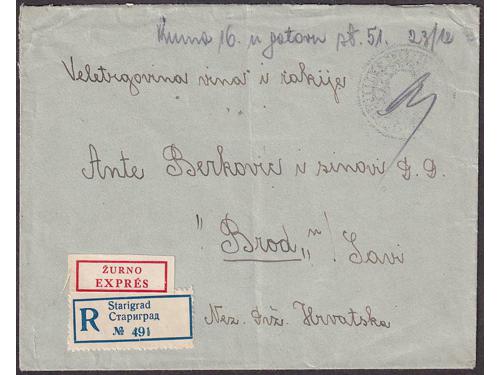 16. u gotovu 51. 23/12
Veletrgovina vina i rakije
Ante Berković i sinovi D. D.
"Brod„ n/Savi
ŽURNO
EXPRÉS
R
Starigrad
Стариград
№ 491
Nez. Drž. Hrvatska